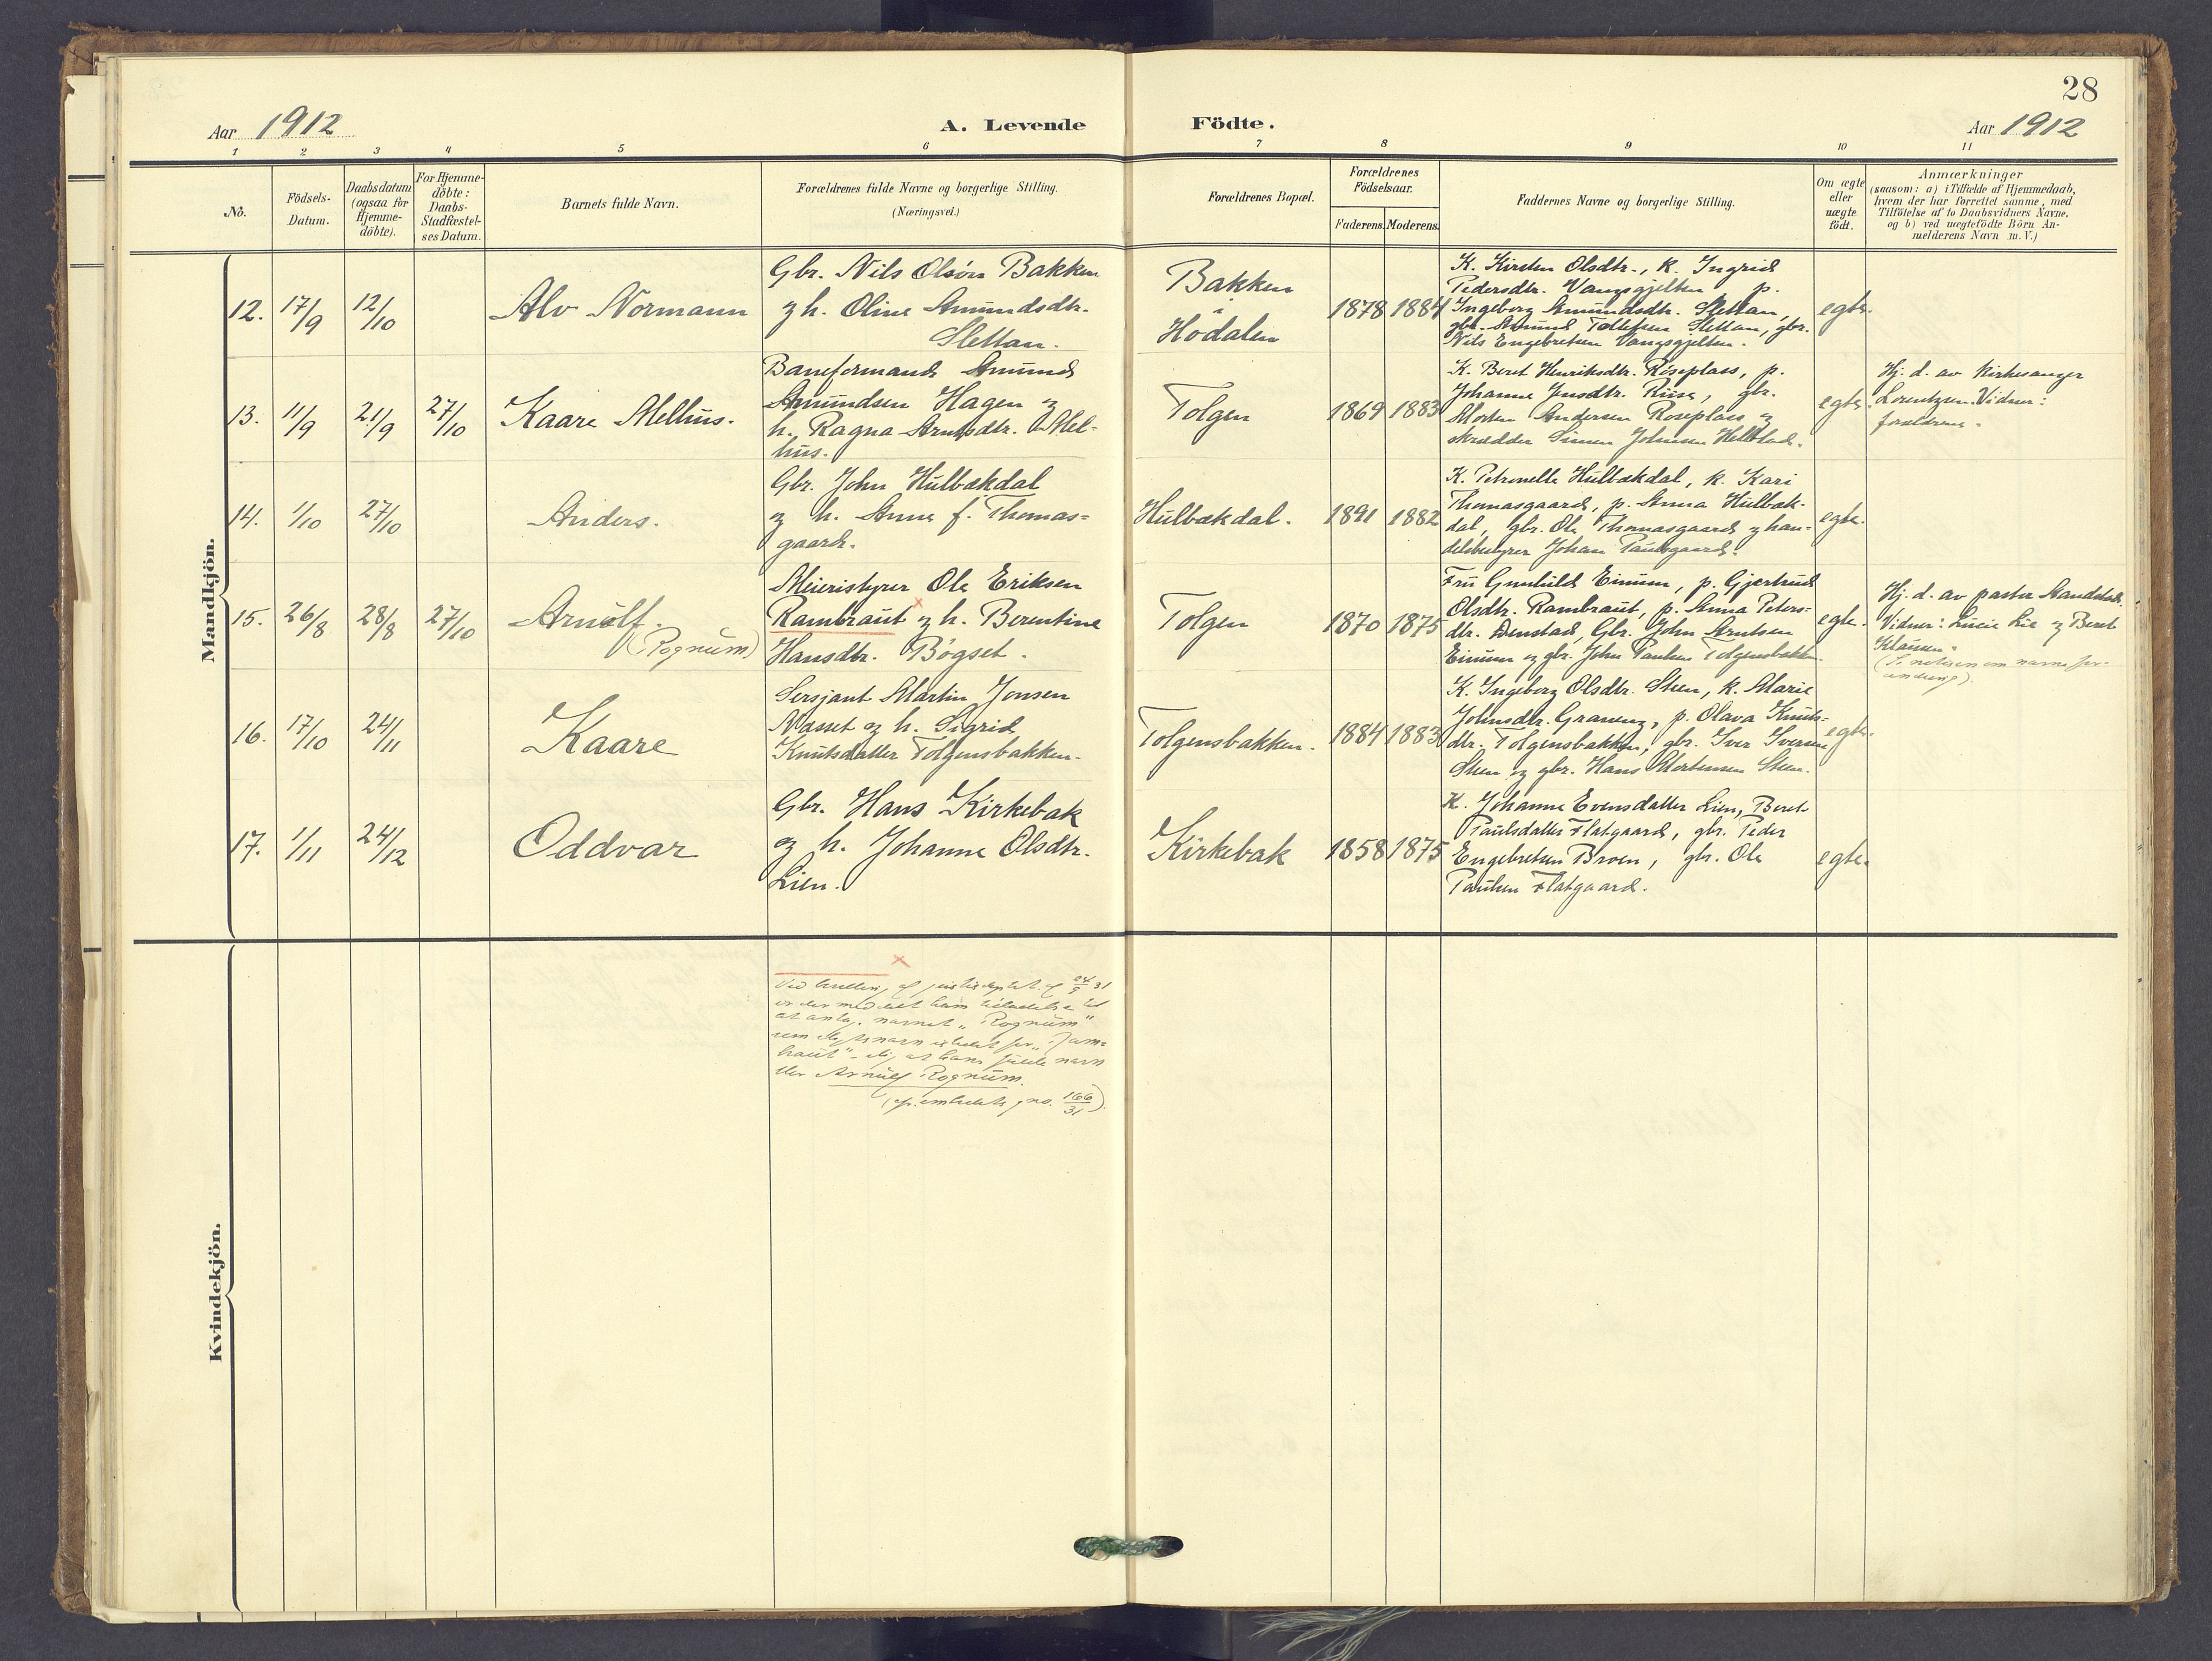 28
Aar 1912
A. Levende Födte.
Aar 1912
1 2 3 4 5 6 7 8 9 10 11
No.
Födsels-
Datum.
Daabsdatum
(ogsaa for
Hjemme-
döbte).
For Hjemme-
döbte:
Daabs-
Stadfæstel-
ses Datum.
Barnets fulde Navn.
Forældrenes fulde Navne og borgerlige Stilling.
(Næringsvei.)
Forældrenes Bopæl.
Forældrenes
Födselsaar.
Faderens. Moderens.
Faddernes Navne og borgerlige Stilling.
Om ægte
eller
uægte
födt.
Anmærkninger
(saasom: a) i Tilfælde af Hjemmedaab,
hvem der har forrettet samme, med
Tilföielse af to Daabsvidners Navne.
og b) ved uægtefödte Börn An-
melderens Navn m. V.)
Mandkjön.
12. 17/9 12/10
Alv Normann
Gbr. Nils Olsön Bakken
og h. Oline Amundsdtr.
Slettan.
Bakken
i
Hodalen
1878 1884
K. Kirsten Olsdtr., K. Ingrid
Pedersdtr. Vangsgjelten p.
Ingeborg Amundsdtr. Slettan,
gbr. Amund Tollefsen Slettan, gbr.
Nils Engebretsen Vangsgjelten.
egte.
13. 11/9 21/9 27/10
Kaare Melhus.
Baneformand Amund
Amundsen Hagen og
h. Ragna Arntsdtr. Mel-
hus.
Tolgen
1869 1883
K. Beret Henriksdtr. Röseplass, p.
Johanne Jensdtr. Ruse, gbr.
Morten Andersen Roseplass og
skrædder Simen Johnsen
egte.
Hj. d. av Kirkesanger
Lorentzen. Vidner:
forældrene.
14. 1/10 27/10
Anders.
Gbr. John Hulbækdal
og h. Anne f. Thomas-
gaard.
Hulbækdal.
1891 1882
K. Petronelle Hulbækdal, K. Kari
Thomasgaard, p. Anna Hulbæk-
dal, gbr. Ole Thomasgaard og han-
delsbestyrer Johan Paulsgaard.
egte.
15. 26/8 28/8 27/10
Arnulf.
(Rognum)
Meieristyrer Ole Eriksen
Rambraut og h. Berentine
Hansdtr. Bögset.
Tolgen
1870 1875
Fru Gunhild Einum, p. Gjertrud
Olsdtr. Rambraut, p. Anna Peters-
dtr. Denstad, Gbr. John Arntsen
Einum og gbr. John Paulsen Tolgensbakken.
egte.
Hj. d. av pastor
Vidner: Lucie Lie og Beret
Klausen.
(S. notisen om navnefor-
andring).
16. 17/10 24/11
Kaare
Sersjant Martin Jonsen
Næsset og h. Sigrid
Knutsdatter Tolgensbakken.
Tolgensbakken.
1884 1883
K. Ingeborg Olsdtr. Steen, K. Marie
Johnsdtr. Graneng, p. Olava Knuts-
dtr. Tolgensbakken, gbr. Iver Iversen
Steen og gbr. Hans Mortensen Steen.
egte.
17. 1/11 24/12
Oddvar
Gbr. Hans Kirkebak
og h. Johanne Olsdtr.
Lien.
Kirkebak
1858 1875
K. Johanne Evensdatter Lien, Beret
Paulsdatter Flatgaard, gbr. Peder
Engebretsen Broen, gbr. Ole
Paulsen Flatgaard.
egte.
Kvindekjön.
Ved bevilling af justisdeptet. af 24/9 31
er der meddelt ham tilladelse til
at antage navnet "Rognum"
som slegtsnavn istedet for "Ram-
braut" at hans fulde navn
blir Arnulf Rognum.
no. 166/31)